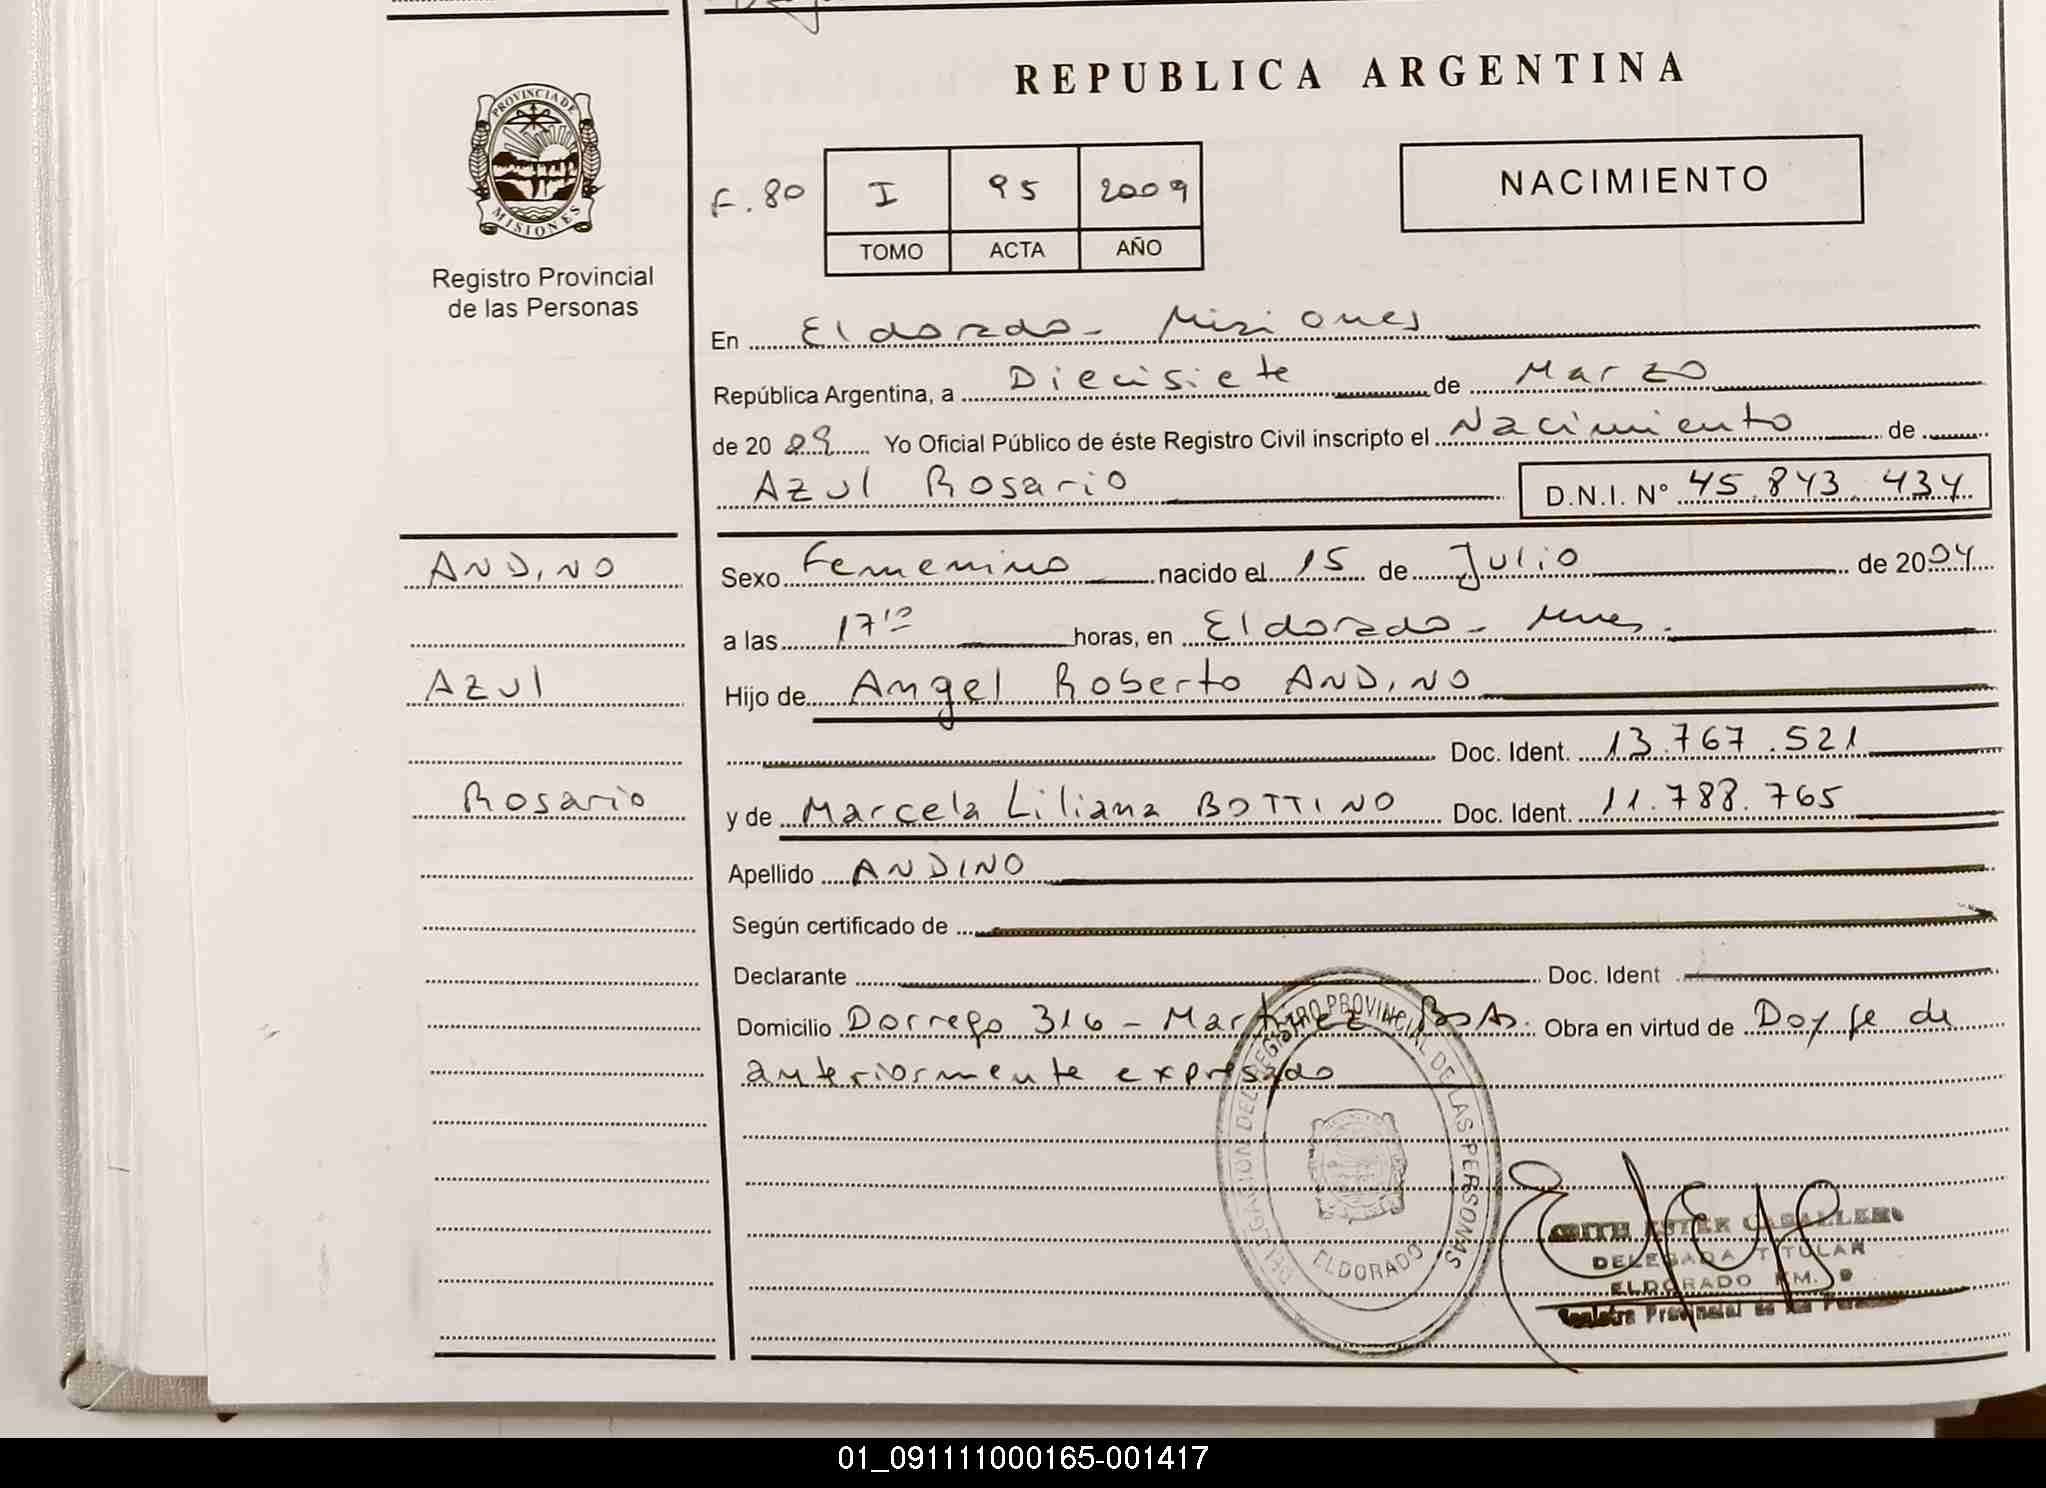 REPUBLICA ARGENTINA
PROVINCIA DE
MISIONES
Registro Provincial
de las Personas
F. 80 I 95 2009
TOMO ACTA AÑO
NACIMIENTO
En Eldorado - Misiones
República Argentina, a Diecisiete de Marzo
de 2009 Yo Oficial Público de éste Registro Civil inscripto el Nacimiento de
Azul Rosario D.N.I. Nº 45.843.434
ANDINO
Azul
Rosario
Sexo Femenino nacido el 15 de Julio de 2004
a las 17 10 horas, en Eldorado - Mnes.
Hijo de Angel Roberto ANDINO
Doc. Ident. 13.767.521
y de Marcela Liliana BOTTINO Doc. Ident. 11.788.765
Apellido ANDINO
Según certificado de
Declarante Doc. Ident
Domicilio Dorrego 316 - Martinez BsAs. Obra en virtud de Doy fe de
anteriormente expresado
DELEGACION DEL REGISTRO PROVINCIAL DE LAS PERSONAS
ELDORADO
EDITH ESTER CABALLERO
DELEGADA TITULAR
ELDORADO KM. 9
Registro Provincial de las Personas
01_091111000165-001417